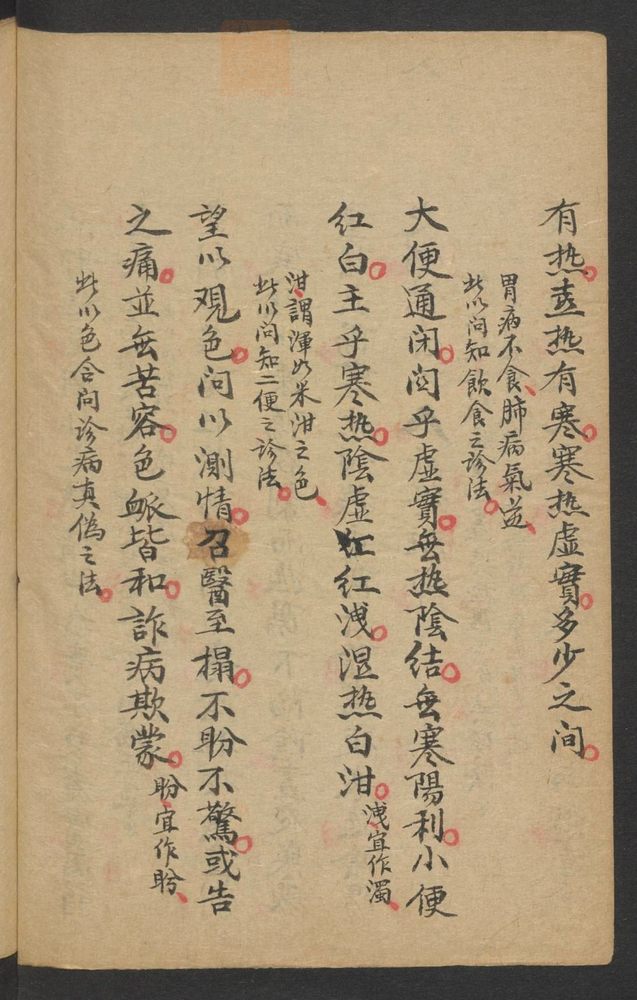 有热。喜热有寒。寒热虛實。多少之间。
胃病不食、肺病氣逆、
此以问知飲食之診法。
大便通闭。闭乎虛實。無热陰结。無寒陽利。小便
红白。主乎寒热。陰虛红红洩。湿热白泔。洩宜作濁、
泔謂渾如米泔之色、
此以问知二便之診法。
望以观色。问以測情。召醫至榻。不盼不驚。或告
之痛。並無苦容。色脈皆和。詐病欺蒙。盼、宜作盻、
此以色合问診病真偽之法。